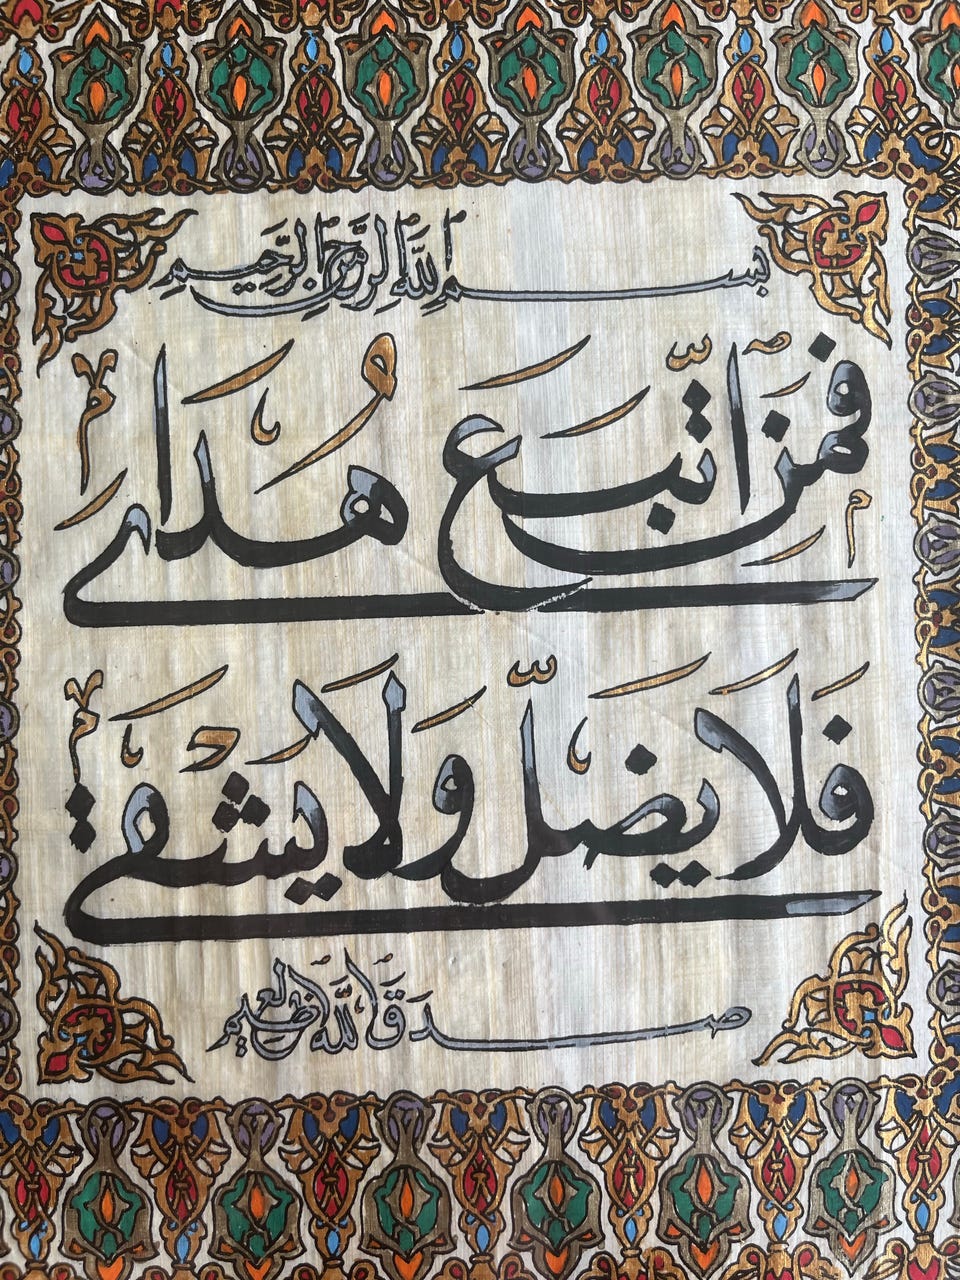 بسم الله الرحمن الرحيم
فمن اتبع هداي
فلا يضل ولا يشقى
صدق الله العظيم